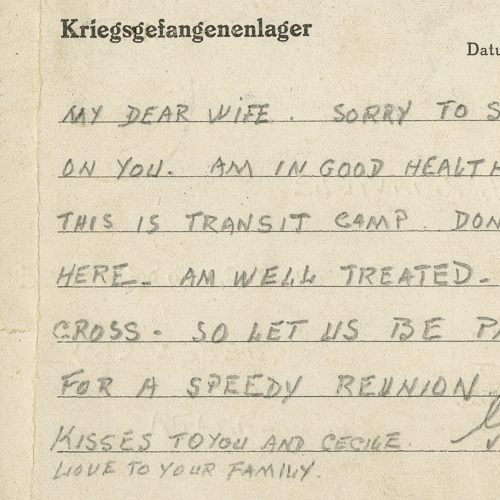 Kriegsgefangenenlager
Datu
MY DEAR WIFE. SORRY TO S
ON YOU. AM IN GOOD HEALTH
THIS IS TRANSIT CAMP. DON
HERE. AM WELL TREATED.
CROSS. SO LET US BE PA
FOR A SPEEDY REUNION.
KISSES TO YOU AND CECILE.
LOVE TO YOUR FAMILY.